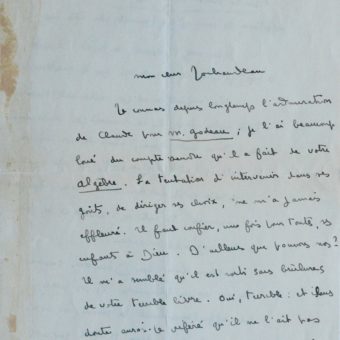 mon cher Jouhandeau
Je connais depuis longtemps l'admiration
de Claude pour M. Godeau ; je l'ai beaucoup
loué du compte rendu qu'il a fait de votre
Algèbre. La tentation d'intervenir dans ses
goûts, de diriger ses choix, ne m'a jamais
effleuré. Il faut confier, une fois pour toute, ses
enfants à Dieu. D'ailleurs que pouvons nos ?
Il m'a semblé qu'il est sorti sans brûlures
de votre terrible livre. Oui, terrible : et sans
doute aurais-je préféré qu'il ne l'ait pas